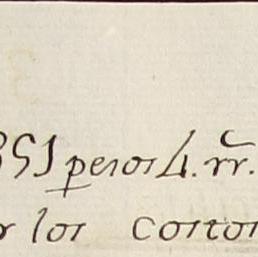 851 pesos 4. rr.
los costos